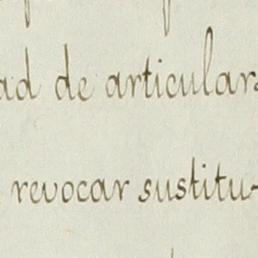 ad de articular
revocar sustitu-